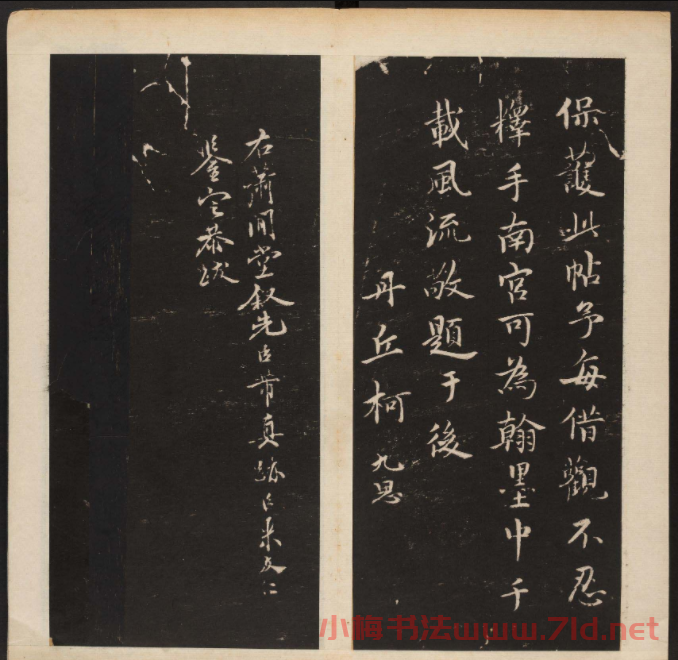 保護此帖予每借觀不忍
釋手南宮可為翰墨中千
載風流敬題于後
丹丘柯九思
右蕭閒堂叙先臣芾真跡臣米友仁
鑒定恭跋
小梅书法www.7ld.net